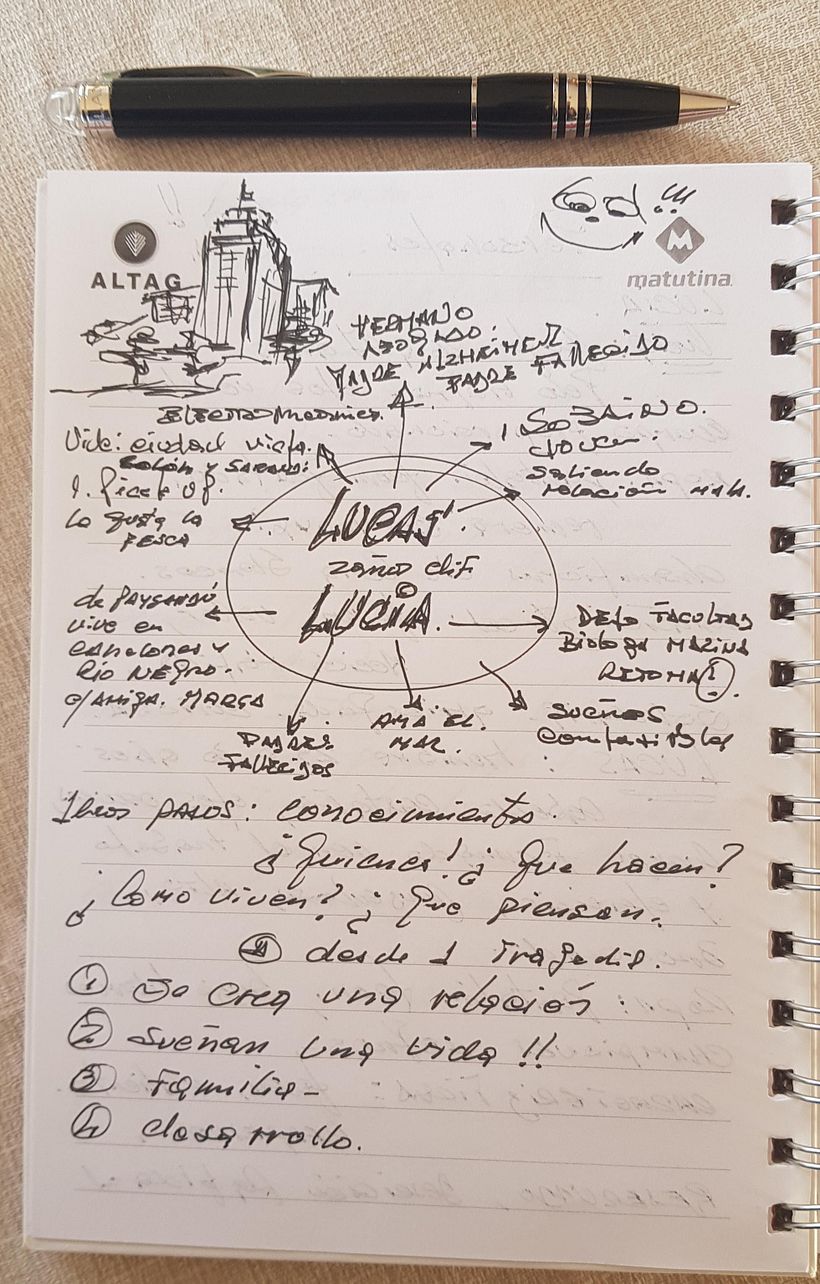 ALTAG
matutina
HERMANO
ABOGADO.
MADRE ALZHEIMER
PADRE FALLECIDO
Electromecánico.
Vive: ciudad vieja.
Colón y Sarandí:
Le gusta la
PESCA
1 SOBRINO.
JOVEN.
saliendo
relación mala.
LUCAS
2 años dif
LUCIA.
de PAYSANDÚ
vive en
canelones y
Río NEGRO.
c/AMIGA. MARÇA
DEJO FACULTAD
Biologa MARINA
RETOMA!
sueños
compartibles
AMA EL
MAR.
PADRES
FALLECIDOS
1eros pasos: conocimiento.
¿Quienes! ¿Que hacen?
¿Como viven? ¿Que piensan.
desde 1 tragedia.
① Se crea una relación:
② Sueñan una vida!!
③ Familia-
④ desarrollo.